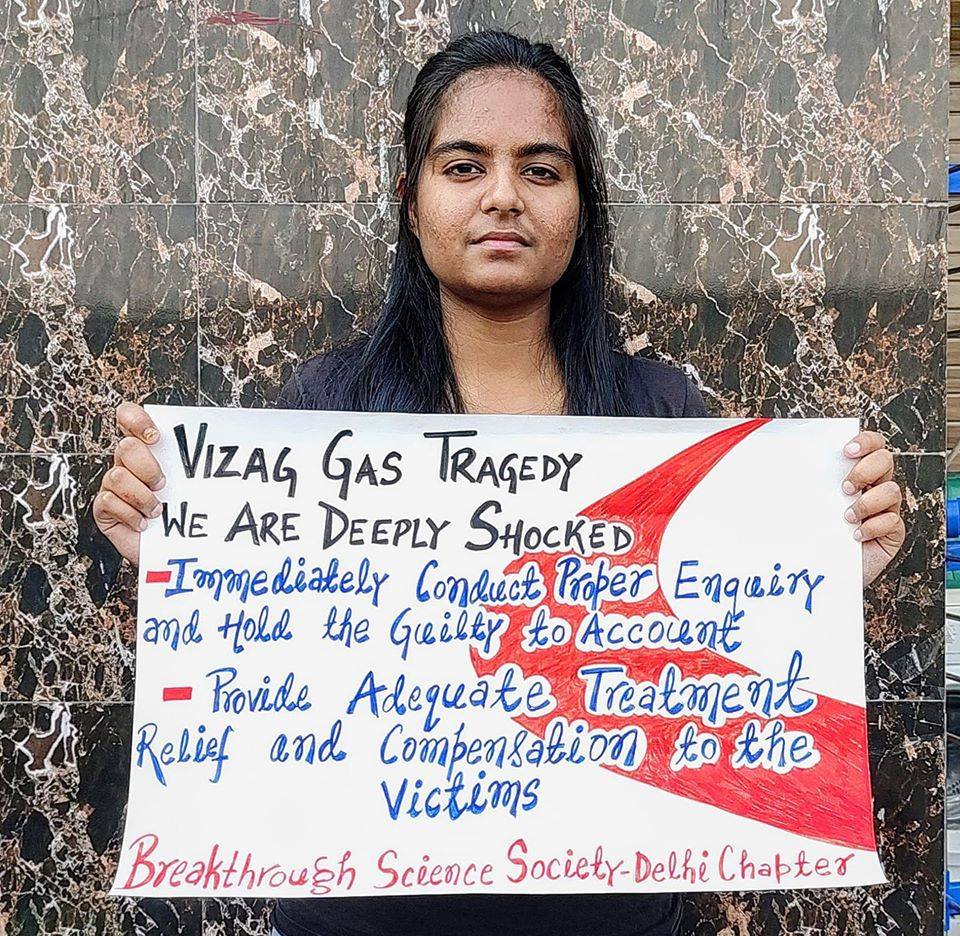 VIZAG GAS TRAGEDY
WE ARE DEEPLY SHOCKED
-Immediately Conduct Proper Enquiry
and Hold the Guilty to Account
- Provide Adequate Treatment
Relief and Compensation to the
Victims
Breakthrough Science Society-Delhi Chapter